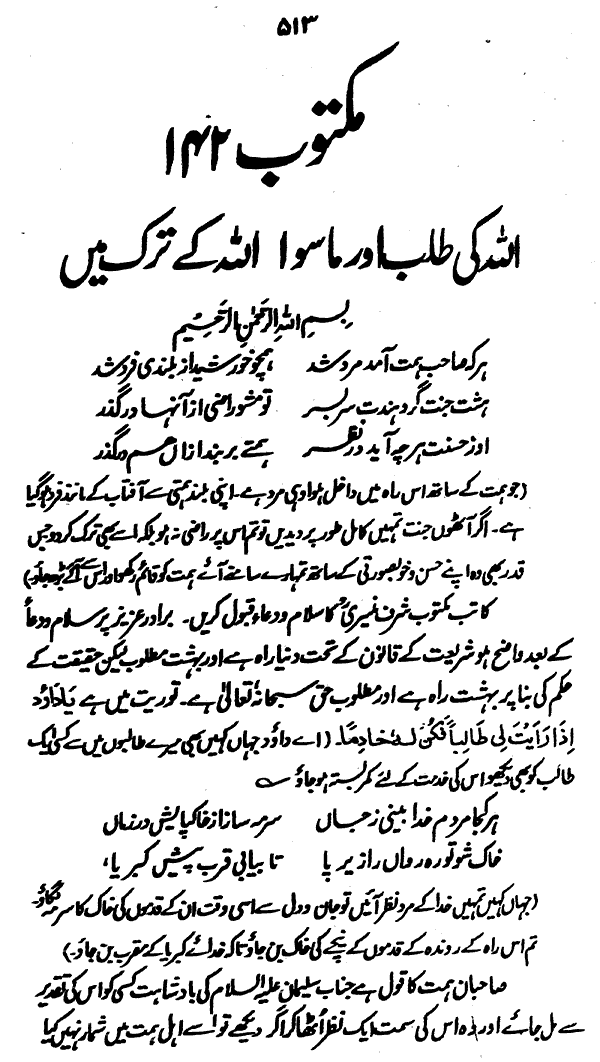 ۵۱۳
مکتوب ۱۴۲
اللہ کی طلب اور ماسوا اللہ کے ترک میں
بِسْمِ اللّٰهِ الرَّحْمٰنِ الرَّحِيْمِ
ہر کہ صاحب ہمت آمد مرد شد ہمچو خورشید از بلندی فرد شد
ہشت جنت گر دہندت سر بسر تو مشو راضی از آنہا در گذر
اوز حسنت ہر چہ آید در نظر ہمتے بربند ازاں ہم در گذر
(جو ہمت کے ساتھ اس راہ میں داخل ہوا وہی مرد ہے۔ اپنی بلند ہمتی سے آفتاب کے مانند فرد ہو گیا
ہے۔ اگر آٹھوں جنت تمہیں کامل طور پر دیدیں تو تم اس پر راضی نہ ہو بلکہ اسے بھی ترک کر دو جس
قدر بھی وہ اپنے حسن و خوبصورتی کے ساتھ تمہارے سامنے آئے ہمت کو قائم رکھو اور اس سے آگے بڑھ جاؤ۔)
کاتب مکتوب شرف منیریؒ کا سلام و دعاء قبول کریں۔ برادر عزیز پر سلام و دعأ
کے بعد واضح ہو شریعت کے قانون کے تحت دنیا راہ ہے اور بہشت مطلوب لیکن حقیقت کے
حکم کی بنا پر بہشت راہ ہے اور مطلوب حق سبحانہٗ تعالیٰ ہے۔ توریت میں ہے یَادَاؤد
اِذَا رَاَیْتَ لِی طَالِباً فَکُنْ لَہٗ خَادِماً۔ (اے داؤد جہاں کہیں بھی میرے طالبوں میں سے کسی ایک
طالب کو بھی دیکھو اس کی خدمت کے لئے کمر بستہ ہو جاؤ
ہر کجا مردم خدا بینی ز جاں سرمہ ساز از خاکپایش در زماں
خاک شو تو رہ رواں را زیر پا تا بیابی قرب پیش کبریا،
(جہاں کہیں تمہیں خدا کے مرد نظر آئیں تو جان و دل سے اسی وقت ان کے قدموں کی خاک کا سرمہ لگاؤ۔
تم اس راہ کے روندہ کے قدموں کے نیچے کی خاک بن جاؤ تاکہ خدائے کبریا کے مقرب بن جاؤ۔)
صاحبان ہمت کا قول ہے جناب سلیمان علیہ السلام کی بادشاہت کسی کو اس کی تقدیر
سے مل جائے اور وہ اس کی سمت ایک نظر اٹھا کر اگر دیکھے تو اسے اہل ہمت میں شمار نہیں کیا